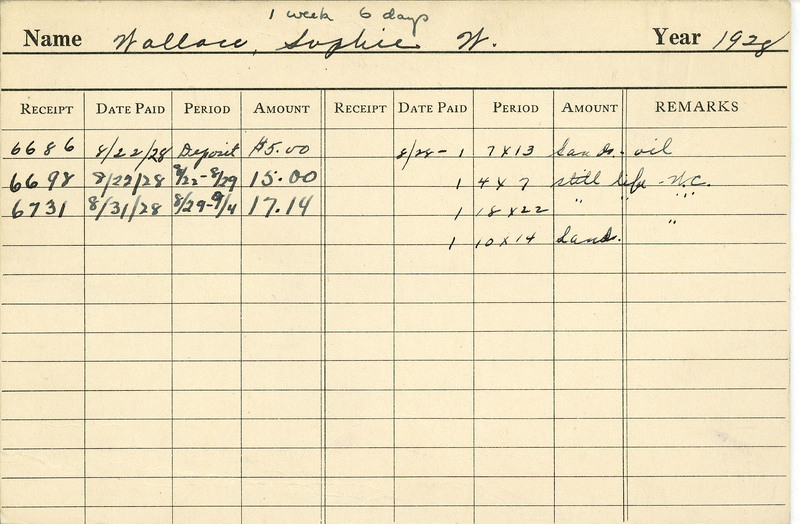 1 week 6 days
Name Wallace, Sophie W. Year 1928
RECEIPT DATE PAID PERIOD AMOUNT RECEIPT DATE PAID PERIOD AMOUNT REMARKS
6686 8/22/28 Deposit $5.00 8/28 - 1 7 x 13 Lands. - oil
6698 8/22/28 8/22-8/29 15.00 1 4 x 7 still life - W.C.
6731 8/31/28 8/29-9/4 17.14 1 18 x 22 " " " "
1 10 x 14 Lands. "